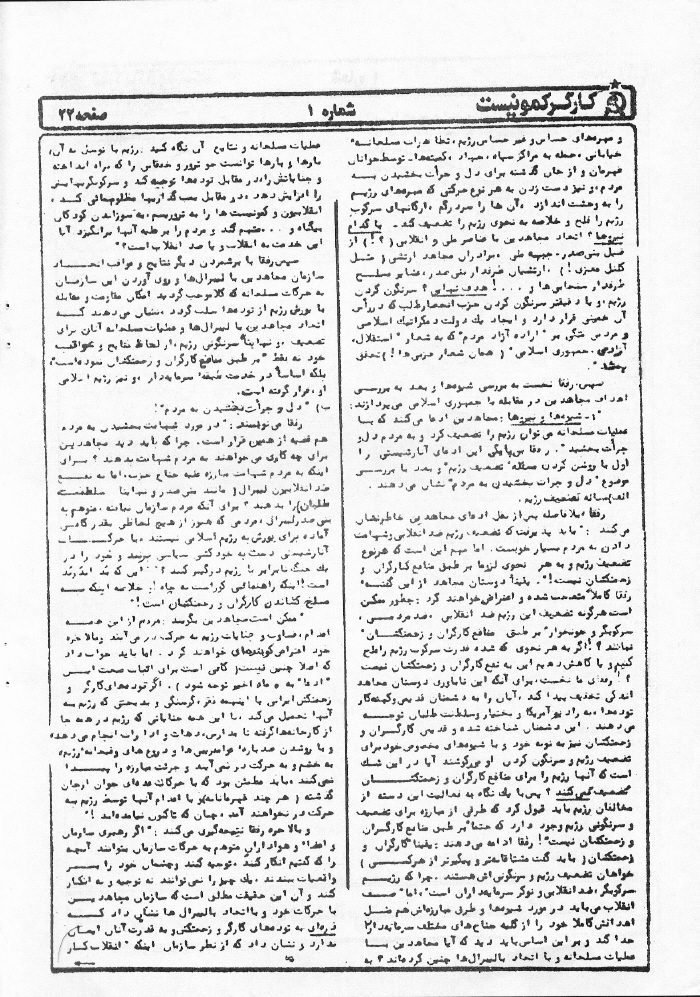 کارگر کمونیست
شماره ۱
صفحه ۲۲
و مهره‌های حساس و غیر حساس رژیم، تظاهرات مسلحانه
خیابانی، حمله به مراکز سپاه، جهاد، کمیته‌ها - توسط جوانان
قهرمان و از جان گذشته برای دل و جرأت بخشیدن به
مردم، و نیز دست زدن به هر نوع حرکتی که مهره‌های رژیم
را به وحشت اندازد، آن‌ها را سردرگم، ارگانهای سرکوب
رژیم را فلج و خلاصه به نحوی رژیم را تضعیف کند - با کدام
نیروها؟ اتحاد مجاهدین با عناصر ملی و انقلابی (؟!) از
قبیل بنی‌صدر، جبهه ملی، برادران مجاهد ارتشی (مثل
کلنل معزی!)، ارتشیان طرفدار بنی‌صدر، عشایر مسلح
طرفدار سنجابی‌ها و ...! هدف نهایی؟ سرنگون کردن
رژیم، و یا دقیقتر سرنگون کردن حزب انحصارطلب که در رأس
آن خمینی قرار دارد و ایجاد یک دولت دمکراتیک اسلامی
و مردمی متکی بر "اراده آزاد مردم" که به شعار "استقلال،
آزادی، جمهوری اسلامی" (همان شعار حزبی‌ها!) تحقق
بخشد."
سپس، رفقا نخست به بررسی شیوه‌ها و بعد به بررسی
اهداف مجاهدین در مقابله با جمهوری اسلامی می‌پردازند:
"۱- شیوه‌ها و نیروها: مجاهدین ادعا می‌کنند که با
عملیات مسلحانه می‌توان رژیم را تضعیف کرد و به مردم دل و
جرأت بخشید". رفقا بی‌پایگی این ادعای آنارشیستی را
اول با روشن کردن مسئله "تضعیف رژیم" و بعد با بررسی
موضوع "دل و جرات بخشیدن به مردم" نشان می‌دهند.
الف) مساله تضعیف رژیم.
رفقا بلافاصله پس از نقل ادعای مجاهدین خاطرنشان
می‌کنند: "باید پذیرفت که تضعیف رژیم ضد انقلابی و شهامت
دادن به مردم بسیار خوبست. اما مهم این است که هر نوع
تضعیف رژیم و به هر نحوی لزوما بر طبق منافع کارگران و
زحمتکشان نیست!". یقینا دوستان مجاهد از این گفته
رفقا کاملا متعجب شده و اعتراض خواهند کرد: چطور ممکن
است هرگونه تضعیف این رژیم ضد انقلابی، ضد مردمی،
سرکوبگر و خونخوار "بر طبق منافع کارگران و زحمتکشان"
نمانند؟! اگر به هر نحوی که شده قدرت سرکوب رژیم را فلج
کنیم و یا کاهش دهیم این به نفع کارگران و زحمتکشان نیست
؟! رفقای ما نخست، برای آنکه این ناباوری دوستان مجاهد
اندکی تخفیف پیدا کند، آنان را به دشمنان قدیمی و کینه‌کار
توده‌ها، به رادیو آمریکا و بختیار و سلطنت طلبان توجه
می‌دهند. این دشمنان شناخته شده و قدیمی کارگران و
زحمتکشان نیز به نوبه خود و با شیوه‌های مخصوص خود برای
تضعیف رژیم و سرنگون کردن او می‌کوشند آیا در این شک
است که آنها رژیم را برای منافع کارگران و زحمتکشان
تضعیف نمی‌کنند؟ پس با یک نگاه به فعالیت این دسته از
مخالفان رژیم باید قبول کرد که طرقی از مبارزه برای تضعیف
و سرنگونی رژیم وجود دارد که حتما "بر طبق منافع کارگران
و زحمتکشان نیست"! رفقا ادامه می‌دهند: یقینا کارگران و
زحمتکشان (باید گفت مشتاقانه‌تر و پیگیرتر از هر کسی)
خواهان تضعیف رژیم و سرنگونی‌اش هستند، چرا که رژیم
سرکوبگر، ضد انقلابی و نوکر سرمایه‌داران است"، اما "صف
انقلاب می‌باید در مورد شیوه‌ها و طرق مبارزه‌اش هم مثل
اهدافش کاملا خود را از کلیه جناح‌های مختلف سرمایه‌داران
جدا کند و بر این اساس باید دید که آیا مجاهدین با
عملیات مسلحانه و با اتحاد با لیبرال‌ها چنین کرده‌اند؟ به
عملیات مسلحانه و نتایج آن نگاه کنید. رژیم با توسل به آن،
بارها و بارها توانست جو ترور و خفقانی را که براه انداخته
و جنایاتش را در مقابل توده‌ها توجیه کند و سرکوبگریهایش
را افزایش دهد، در مقابل بمبگذاریها مظلوم‌نمائی کند،
انقلابیون و کمونیست ها را به تروریسم، به سوزاندن کودکان
بیگناه و ... متهم کند و مردم را بر علیه آنها برانگیزد. آیا
این خدمت به انقلاب و یا ضد انقلاب است؟"
سپس رفقا با برشمردن دیگر نتایج و عواقب اتحاد
سازمان مجاهدین با لیبرال‌ها و روی آوردن این سازمان
به حرکات مسلحانه که کلا موجب گردید امکان مقاومت و مقابله
با یورش رژیم از توده‌ها سلب گردد، نشان می‌دهند که
اتحاد مجاهدین با لیبرال‌ها و عملیات مسلحانه آنان برای
تضعیف، و نهایتا سرنگونی رژیم، از لحاظ نتایج و عواقب
خود نه فقط "بر طبق منافع کارگران و زحمتکشان نبوده است"،
بلکه اساسا در خدمت طبقه سرمایه‌دار، و نیز رژیم اسلامی
او، قرار گرفته است.
ب) "دل و جرأت بخشیدن به مردم"!
رفقا می‌نویسند: "در مورد شهامت بخشیدن به مردم
هم قصه از همین قرار است. چرا که باید دید مجاهدین
برای چه کاری می‌خواهند به مردم شهامت بدهند؟ برای
اینکه به مردم شهامت مبارزه علیه جناح حزب، اما به نفع
ضد انقلابیون لیبرال (مانند بنی‌صدر و نهایتا سلطنت
طلبان) را بدهند؟ برای آنکه مردم سازمان نیافته، متوهم به
بنی‌صدر لیبرال، مردمی که هنوز از هیچ لحاظی بقدر کافی
آماده برای یورش به رژیم اسلامی نیستند، با حرکات
آنارشیستی دست به خودکشی سیاسی بزنند و خود را در
یک جنگ نابرابر با رژیم درگیر کنند؟ این که بُد اندر بُد
است! اینکه راهنمائی کور است به چاه! و خلاصه اینکه به
مسلخ کشاندن کارگران و زحمتکشان است!"
"ممکن است مجاهدین بگویند: مردم از این همه
اعدام، مصائب و جنایات رژیم به حرکت در می‌آیند و بالاخره
خود اعتراض کوبنده‌ای خواهند کرد. اما باید جواب داد
که اصلا چنین نیست (کافی است برای اثبات صحت این
"ادعا" به ۵ ماه اخیر توجه شود). اگر توده‌های کارگر و
زحمتکش ایرانی با اینهمه فقر، گرسنگی و بدبختی که رژیم به
آنها تحمیل می‌کند، با این همه جنایاتی که رژیم در همه جا
از کارخانه‌ها گرفته تا مدارس، دهات و ادارات انجام می‌دهد
و با روشدن صدباره عوامفریبی‌ها و دروغ های وقیحانه "رژیم"
به خشم و به حرکت در نمی‌آیند و جرئت مبارزه را پیدا
نمی‌کنند، باید مطمئن بود که با حرکات عده‌ای جوان از جان
گذشته (هر چند قهرمانانه) و یا اعدام آنها توسط رژیم به
حرکت در نخواهند آمد، چنان که تاکنون نیامده‌اند!"
و بالاخره رفقا نتیجه‌گیری می‌کنند: "اگر رهبری سازمان
و اعضاء و هواداران متوهم به حرکات سازمان بتوانند آنچه
را که گفتیم انکار کنند، توجیه کنند و چشمان خود را بر
واقعیات ببندند، یک چیز را نمی‌توانند نه توجیه و نه انکار
کنند و آن این حقیقت مطلق است که سازمان مجاهدین
با حرکات خود و با اتحاد با لیبرال ها نشان داد که
ذره‌ای به توده‌های کارگر و زحمتکش و به قدرت آنان ایمان
ندارد و نشان داد که از نظر سازمان اینکه "انقلاب کار